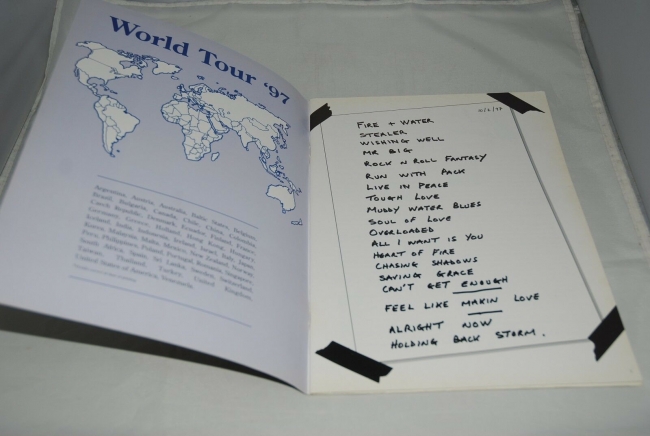 World Tour '97
Argentina, Austria, Australia, Belgium,
Brazil, Bulgaria, Canada, Chile, China,
Czech Republic, Denmark, Ecuador, Finland, France,
Germany, Greece, Holland, Hong Kong, Hungary,
Iceland, India, Indonesia, Ireland, Israel, Italy, Japan,
Korea, Malaysia, Malta, Mexico, New Zealand, Norway,
Peru, Philippines, Poland, Portugal,
South Africa, Spain, Sri Lanka, Sweden,
Taiwan, Thailand, Turkey, United Kingdom,
United States of America, Venezuela
FIRE + WATER
STEALER
WISHING WELL
MR BIG
ROCK N ROLL FANTASY
RUN WITH PACK
LIVE IN PEACE
TOUGH LOVE
MUDDY WATER BLUES
SOUL OF LOVE
OVERLOADED
ALL I WANT IS YOU
HEART OF FIRE
CHASING SHADOWS
SAVING GRACE
CAN'T GET ENOUGH
FEEL LIKE MAKIN LOVE
ALRIGHT NOW
HOLDING BACK STORM.